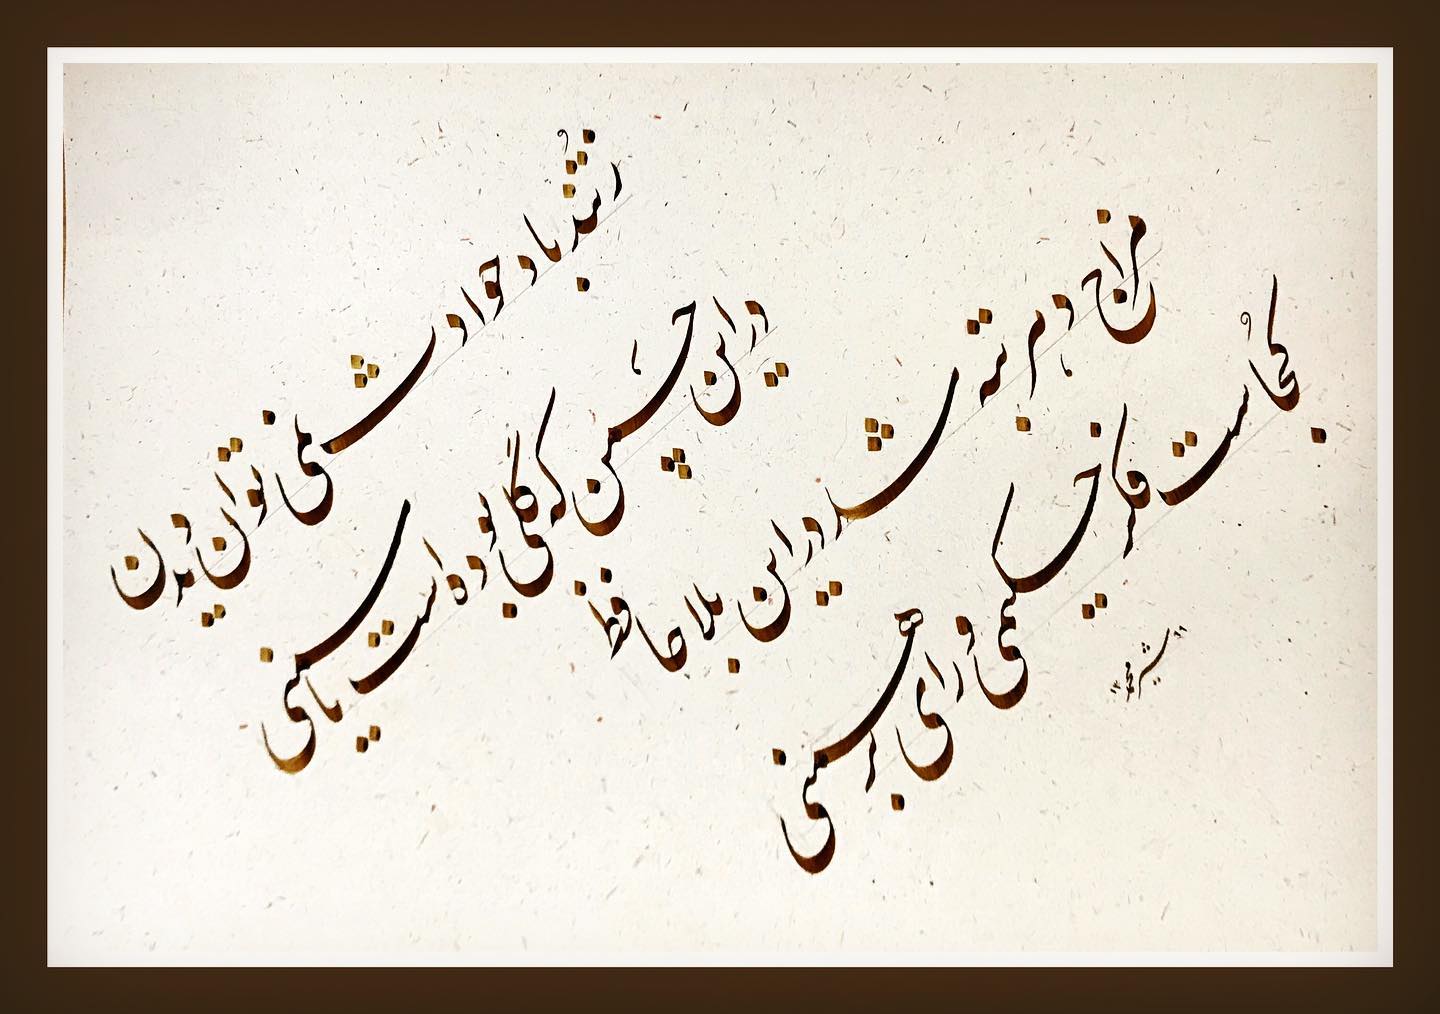 ز تندباد حوادث نمی توان دیدن
در این چمن که گلی بوده است یا سمنی
مزاج دهر تبه شد در این بلا حافظ
کجاست فکر حکیمی و رای برهمنی